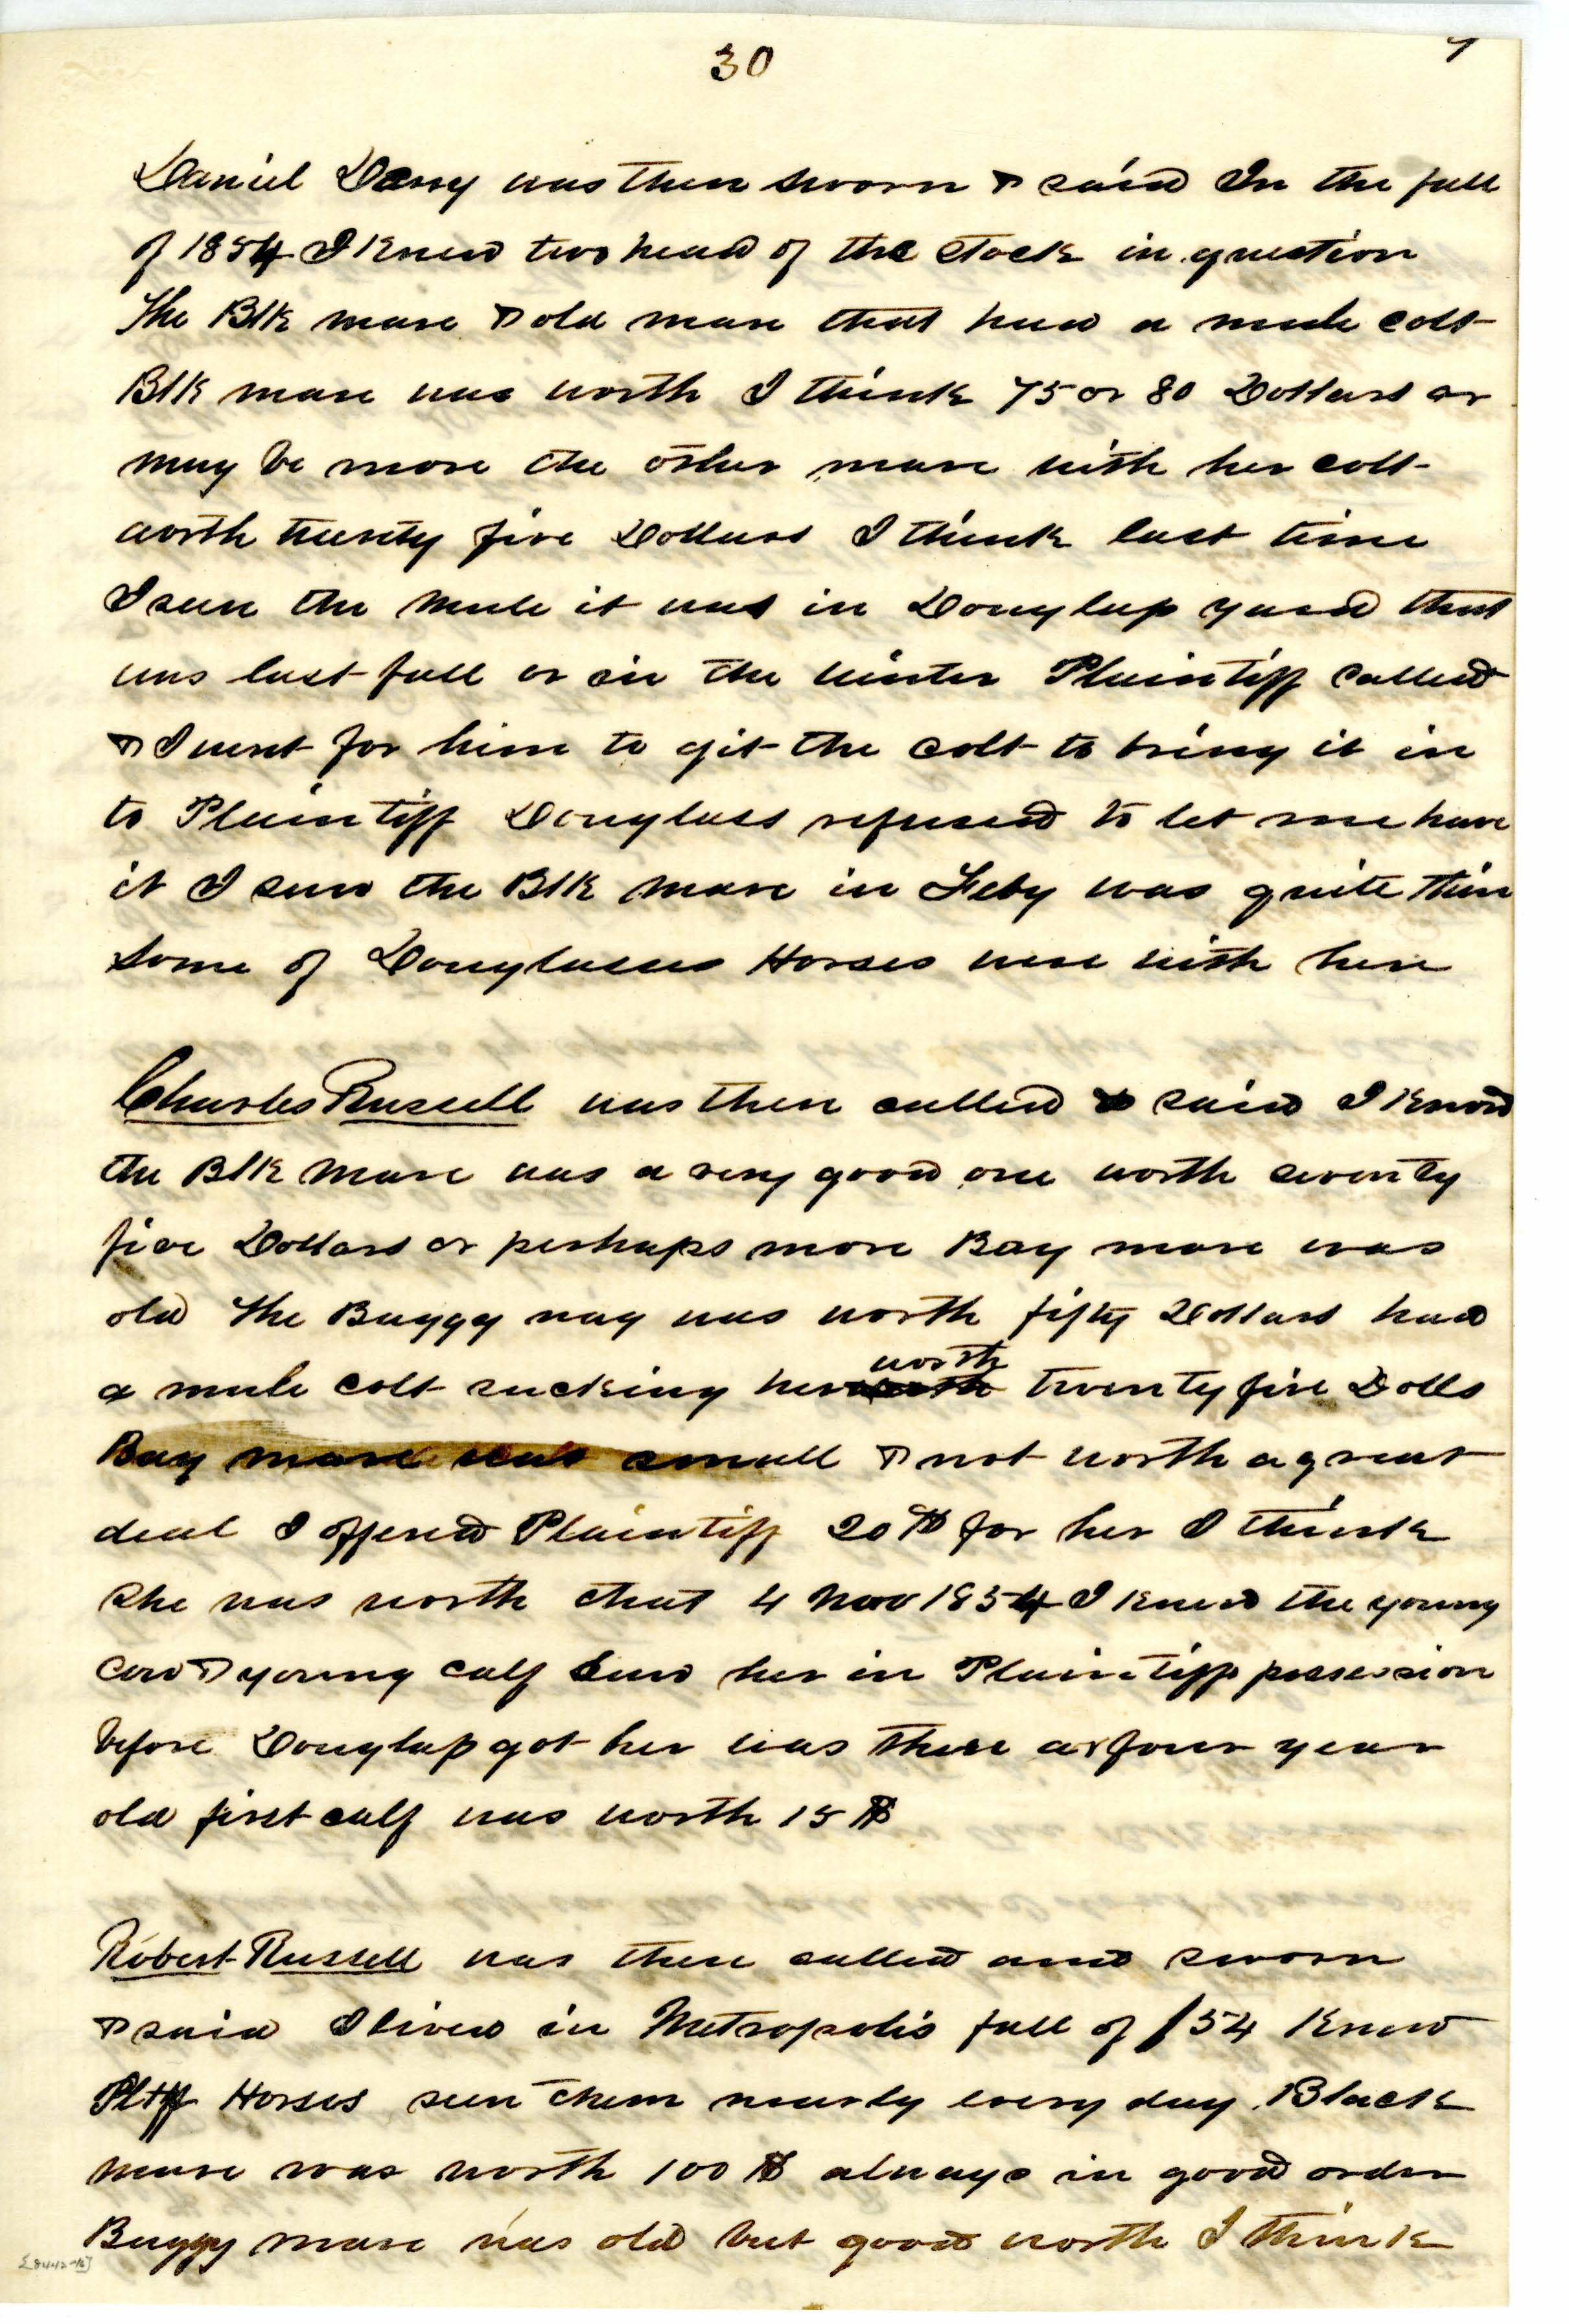 30
7
Daniel Dany was then sworn & said In the fall
of 1854 I Knew two head of the stock in question
The Blk mare & old mare that had a mule colt
Blk mare was worth I think 75 or 80 Dollars or
may be more the other mare with her colt
worth twenty five Dollars I think last time
I seen the mule it was in Douglass yard that
was last fall or in the winter Plaintiff called
& I went for him to git the colt to bring it in
to Plaintiff Douglass refused to let me have
it I saw the Blk mare in Feby was quite thin
some of Douglasses Horses were with her
Charles Russell was then called & said I Know
the Blk mare was a very good one worth seventy
five Dollars or perhaps more Bay mare was
old The Buggy nag was worth fifty Dollars had
worth
a mule colt sucking her twenty five Dolls
Bay mare was small & not worth a great
deal I offered Plaintiff 20 $ for her I think
she was worth that 4 Nov 1854 I Knew the young
Cow & young calf saw her in Plaintiffs possession
before Douglass got her was three or four year
old first calf was worth 15 $
Robert Russell was then called and sworn
& said I lived in Metropolis fall of /54 Knew
Pltff Horses seen them nearly every day Black
mare was worth 100 $ always in good order
Buggy mare was old but good worth I think